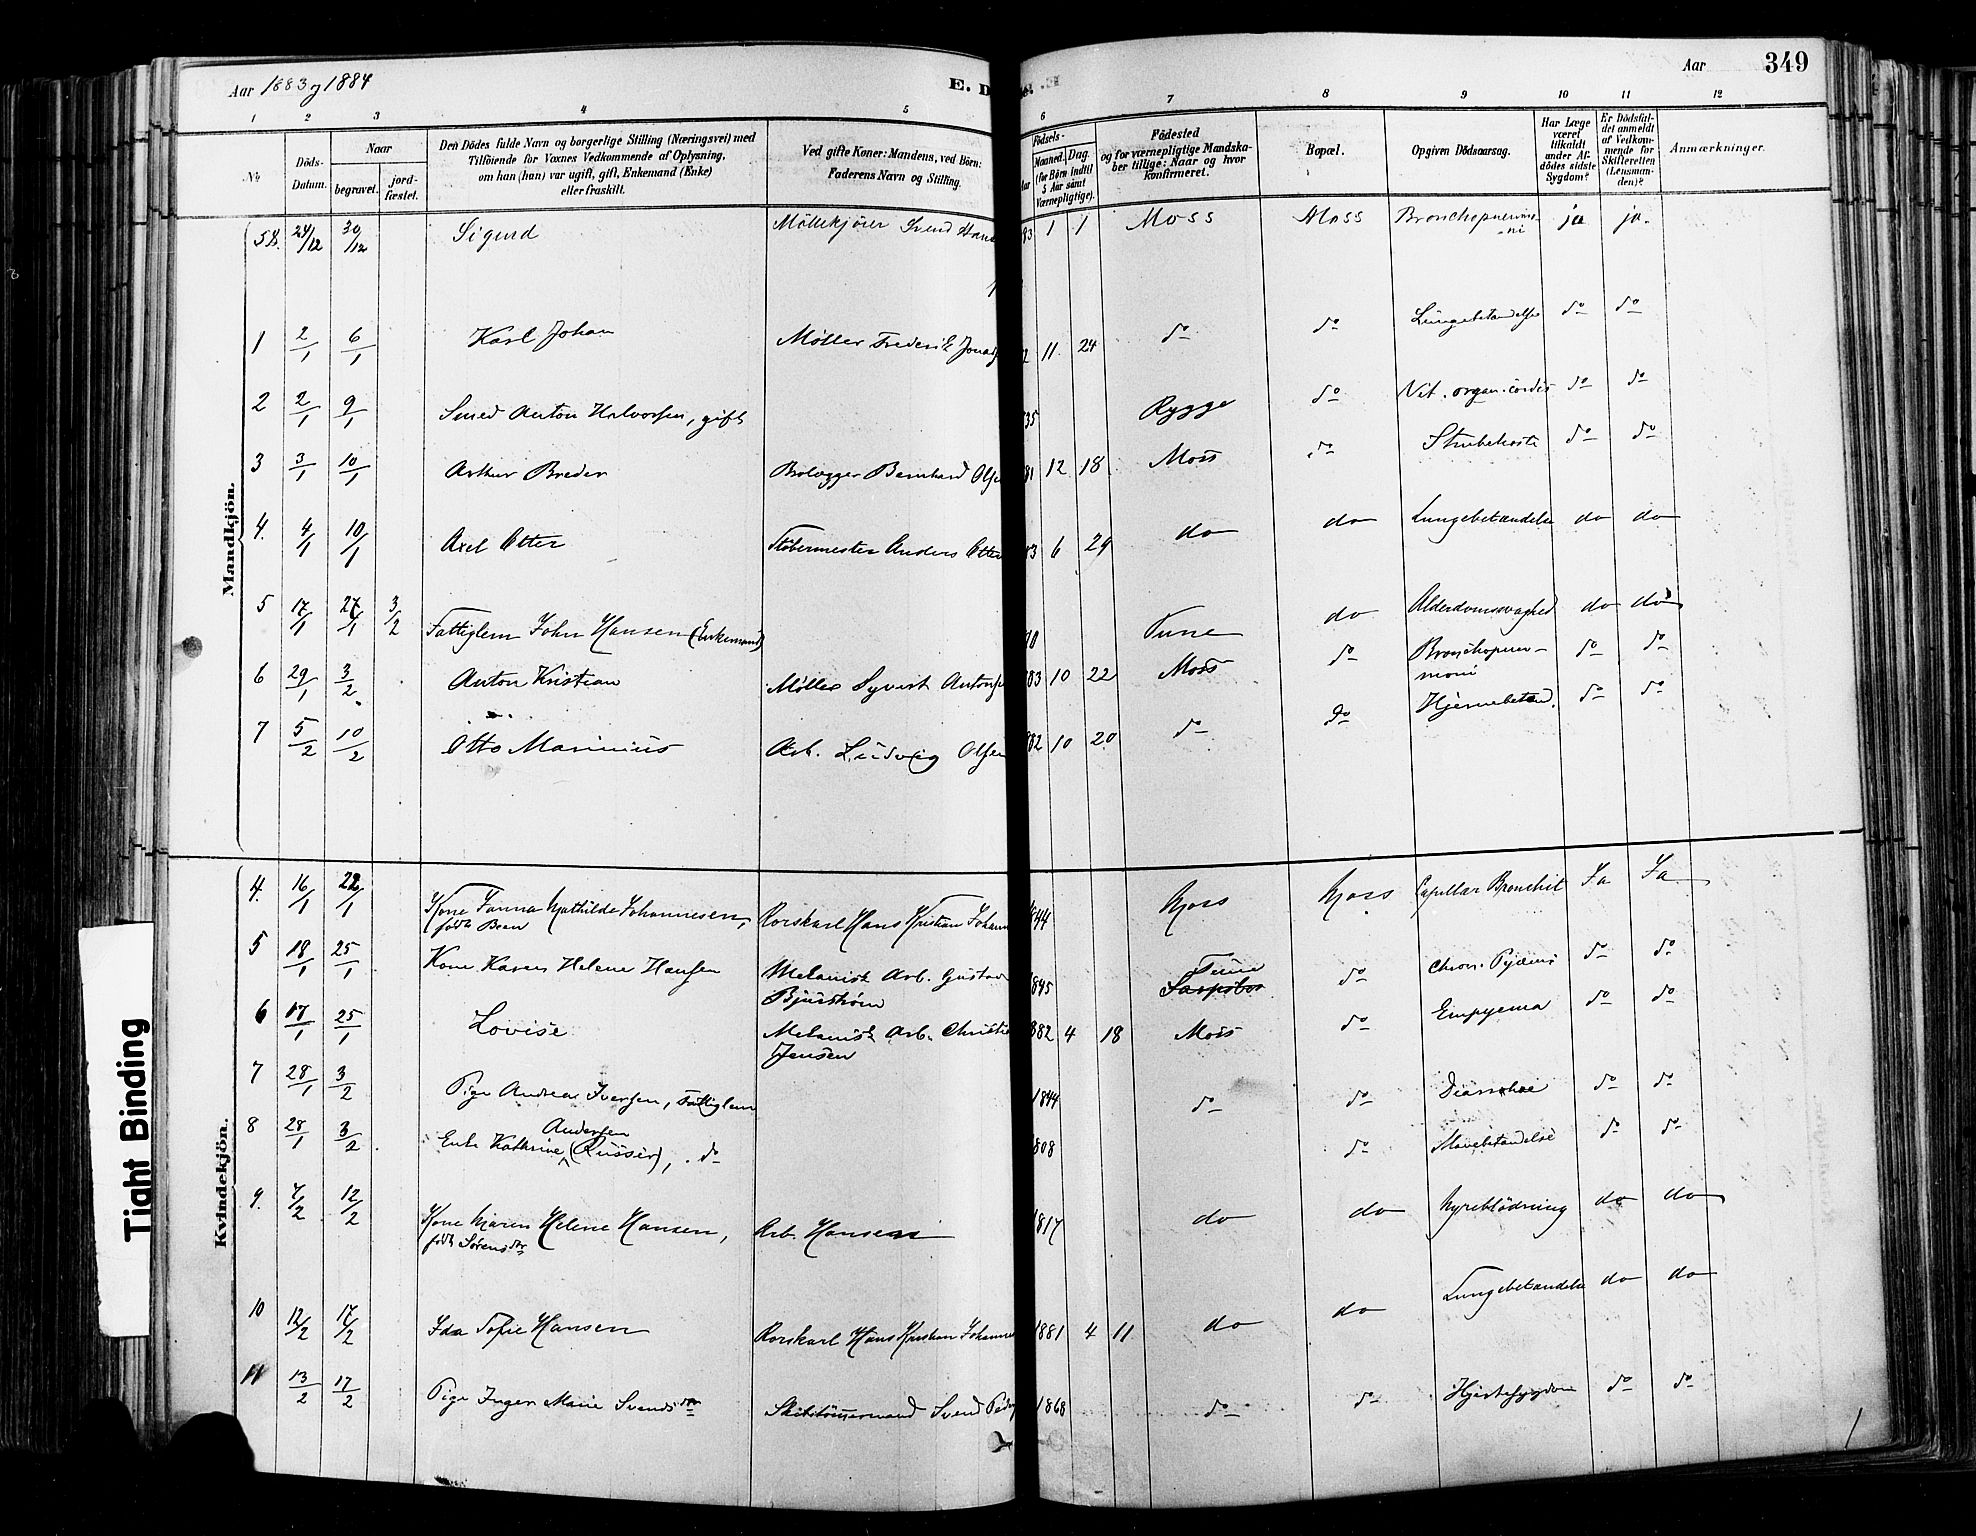 Aar 1883 og 1884
E. D
Aar
349
1 2 3 4 5 6 7 8 9 10 11 12
No.
Döds-Datum.
Naar
begravet.
jord-fæstet.
Den Dödes fulde Navn og borgerlige Stilling (Næringsvei) med
Tilföiende for Voxnes Vedkommende af Oplysning,
om han (hun) var ugift, gift, Enkemand (Enke)
eller fraskilt.
Ved gifte Koner: Mandens, ved Börn:
Faderens Navn og Stilling.
Födsels-
Aar
Maaned. Dag.
(for Börn indtil
5 Aar samt
Værnepligtige).
Födested
og for værnepligtige Mandska-
ber tillige: Naar og hvor
konfirmeret.
Bopæl.
Opgiven Dödsaarsag.
Har Læge
været
tilkaldt
under Af-
dödes sidste
Sygdom?
Er Dödsfal-
det anmeldt
af Vedkom-
mende for
Skifteretten
(Lensman-
den)?
Anmærkninger.
Mandkjön.
58. 24/12 30/12 Sigurd Møllekjører Svend Hans 83 1 1 Moss Moss Bronchopneumo-
ni ja ja.
1 2/1 6/1 Karl Johan Møller Frederik Jonas 2 11 24 do do Lungebetændelse do do
2 2/1 9/1 Smed Anton Halvorsen, gift 35 Rygge do Vit. organ. cordis do do
3 3/1 10/1 Arthur Breder Brolægger Bernhard Olse 81 12 18 Moss do Strubehoste do do
4. 4/1 10/1 Axel Otter Støbermester Anders Otter 83 6 29 do do Lungebetændelse do do
5 17/1 27/1 3/2 Fattiglem John Hansen (Enkemand) Tune do Alderdomssvaghed do do
6 29/1 3/2 Anton Kristian Møller Syvert Antons 83 10 22 Moss do Bronchopneu-
moni do do
7 5/2 10/2 Otto Marinius Arb. Ludvig Olsen 82 10 20 do do Hjernebetænd. do do
Kvindekjön.
4. 16/1 22/1 Kone Fanna Mathilde Johannesen,
født Bean Rorskarl Hans Kristian Johann 844 Moss Moss Capillar Bronchit Ja Ja
5 18/1 25/1 Kone Karen Helene Hansen Mekanisk Arb. Gustav
Bjurstrøm 845 Tune
Sarpsbor do Chron. Pyæmi do do
6 17/1 25/1 Lovise Mekanisk Arb. Christia
Jensen 882 4 18 Moss do Empyema do do
7 28/1 3/2 Pige Andrea Iversen, Fattiglem 1844 do do Diarrhoe do do
8 28/1 3/2 Andersen
Enke Kathrine (Russer), do 808 do Mavebetændelse do do
9. 7/2 12/2 Kone Maren Helene Hansen,
født Sørensdtr Arb. Hansen 1817 do do Nyreblødning do do
10 12/2 17/2 Ida Sofie Hansen Rorskarl Hans Kristian Johannes 1881 4 11 do do Lungebetændelse do do
11 13/2 17/2 Pige Inger Marie Svendsdtr Skibstømmermand Svend Peders 1868 do do Hjertesygdom do do
Tight Binding